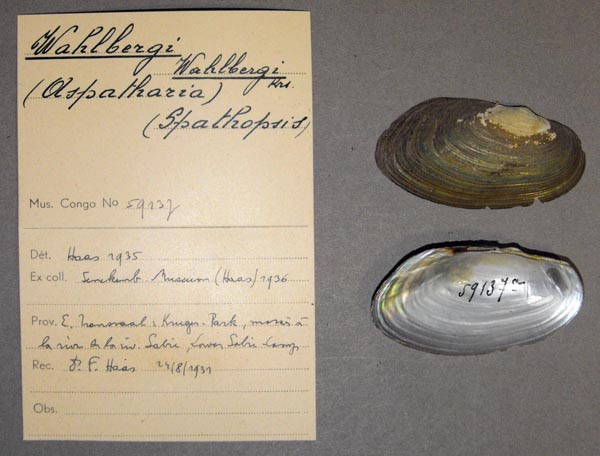 Wahlbergi
Wahlbergi
Krs.
(Aspatharia)
(Spathopsis)
Mus. Congo No 59137
Dét. Haas 1935
Ex coll. Senckenb. Museum (Haas) 1936
Prov. E. Transvaal: Kruger-Park, mares à
la rive de la riv. Sabie, Lower Sabie-Camp
Rec. Dr F. Haas 24/8/1931
Obs.
59137